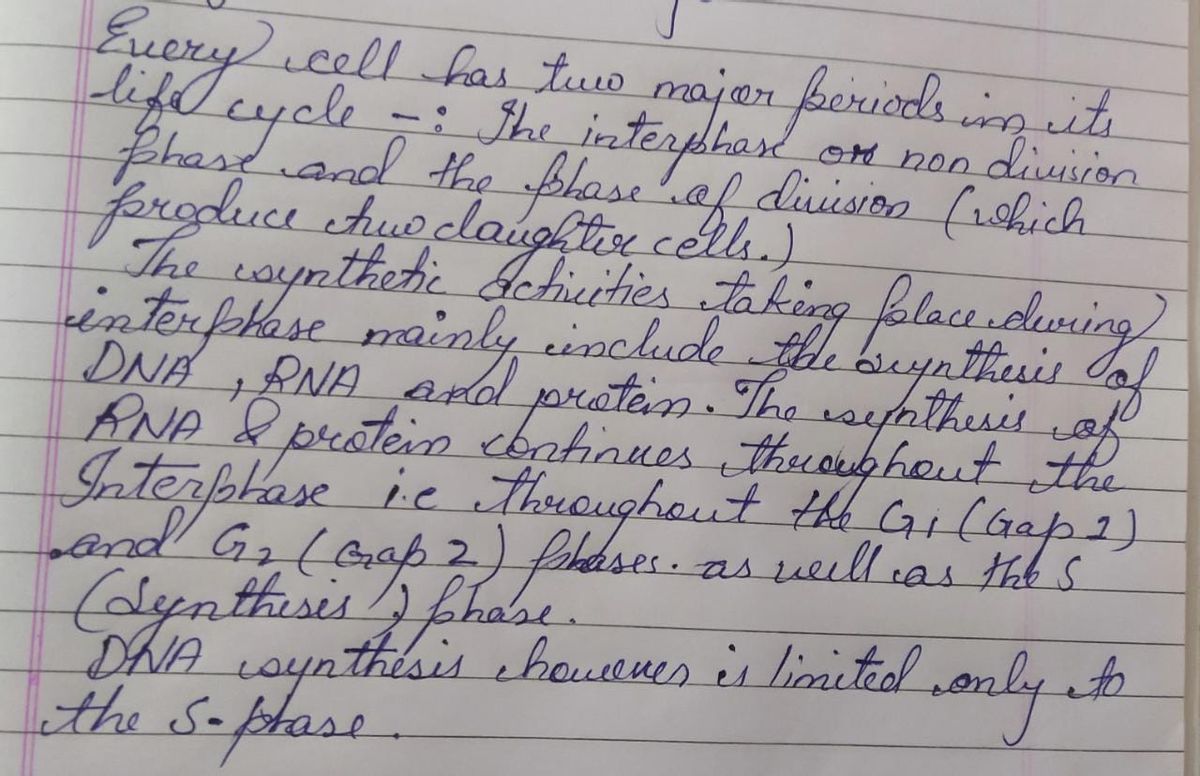 Every cell has two major periods in its
life cycle -: The interphase or non division
phase and the phase of division (which
produce two daughter cells.)
The synthetic Activities taking place during
interphase mainly include the synthesis of
DNA, RNA and protein. The synthesis of
RNA & protein continues throughout the
Interphase i.e throughout the G1 (Gap 1)
and G2 (Gap 2) phases. as well as the S
(Synthesis) phase.
DNA synthesis however is limited only to
the S-phase.